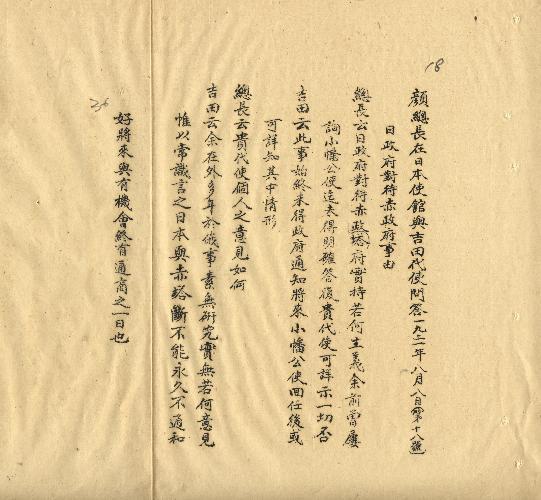 18
顏總長在日本使館與吉田代使問答一九二一年八月八日第十八號
日政府對待赤政府事由
總長云日政府對待赤塔政府實持若何主義余前曾屢
詢小幡公使迄未得明確答復貴代使可詳示一切否
吉田云此事始終未得政府通知將來小幡公使回任後或
可詳知其中情形
總長云貴代使個人之意見如何
吉田云余在外多年於彼事素無研究實無若何意見
惟以常識言之日本與赤塔斷不能永久不通和
好將來與有機會終有通商之一日也
26